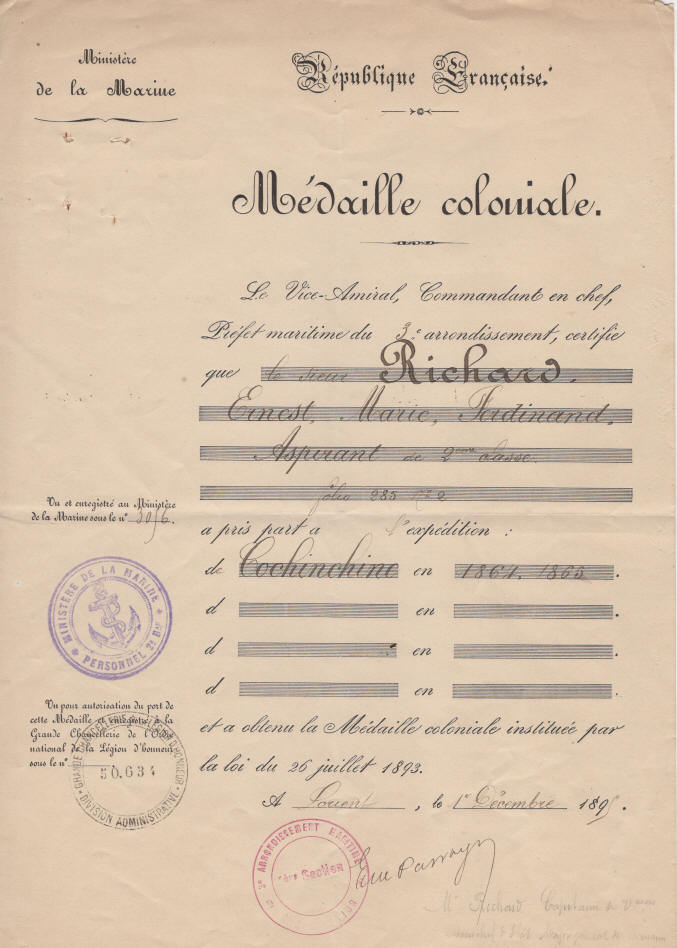 Ministère
de la Marine
République Française.
Médaille coloniale.
Le Vice-Amiral, Commandant en chef,
Préfet maritime du 3e arrondissement, certifie
que le sieur Richard,
Ernest, Marie, Ferdinand,
Aspirant de 2eme classe
folio 285 no 2
a pris part a l'expédition :
de Cochinchine en 1864. 1865.
d en .
d en .
d en .
et a obtenu la Médaille coloniale instituée par
la loi du 26 juillet 1893.
A Lorient, le 1er Décembre 189
Vu et enregistré au Ministère
de la Marine sous le no
MINISTERE DE LA MARINE
PERSONNEL
Vu pour autorisation du port de
cette Médaille et enregistré à la
Grande Chancellerie de l'Ordre
national de la Légion d'honneur
sous le no
50.634
GRANDE CHANCELLERIE DE LA LEGION D'HONNEUR
DIVISION ADMINISTRATIVE
ARRONDISSEMENT MARITIME
1ère Section
Mr Richard Capitaine de